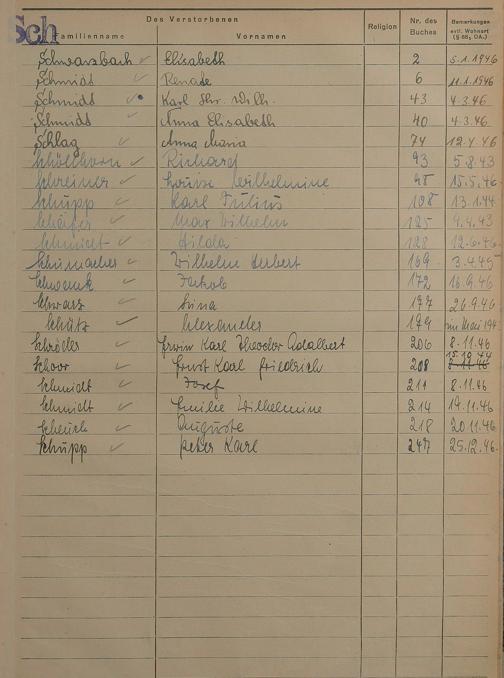 Sch
Des Verstorbenen
Familienname Vornamen Religion Nr. des Buches Bemerkungen evtl. Wohnort (§ 68, DA.)
Schwarsbach Elisabeth 2 5.1.1946
Schmidt Renate 6 11.1.1946
Schmidt Karl Hr. Wilh. 43 4.3.46
Schmidt Anna Elisabeth 40 4.3.46
Schlag Anna Maria 74 12.4.46
Schölhorn Richard 93 5.8.43
Schreiner Louise Wilhelmine 15.5.46
Schupp Karl Julius 108 13.1.44
Schäfer Max Wilhelm 125 4.4.43
Schmidt Hilda 128 12.6.46
Schumacher Wilhelm Herbert 169 3.4.45
Schwenk Jakob 172 16.9.46
Schwarz Lina 177 26.9.46
Schütz Alexander 179 im Mai 194
Schröder Erwin Karl Theodor Adalbert 206 8.11.46
Schoor Ernst Karl Friedrich 208 15.10.44
Schmidt Josef 211 8.11.46
Schmidt Emilie Wilhelmine 214 14.11.46
Scheuch Auguste 218 20.11.46
Schupp Peter Karl 247 25.12.46